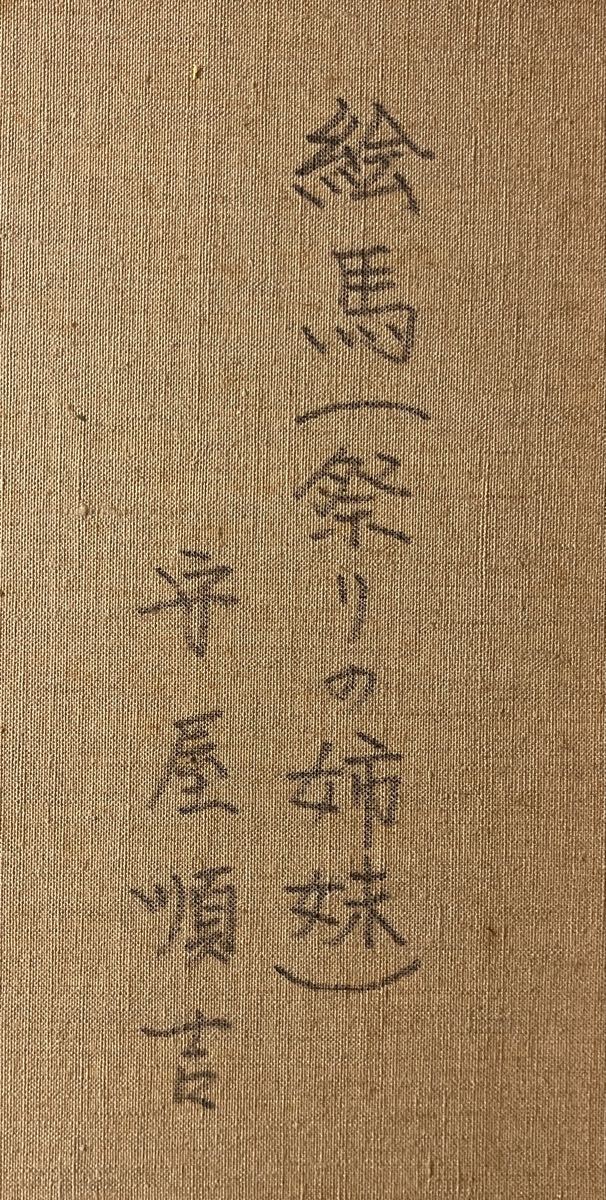 絵馬(祭りの姉妹)
守屋順吉